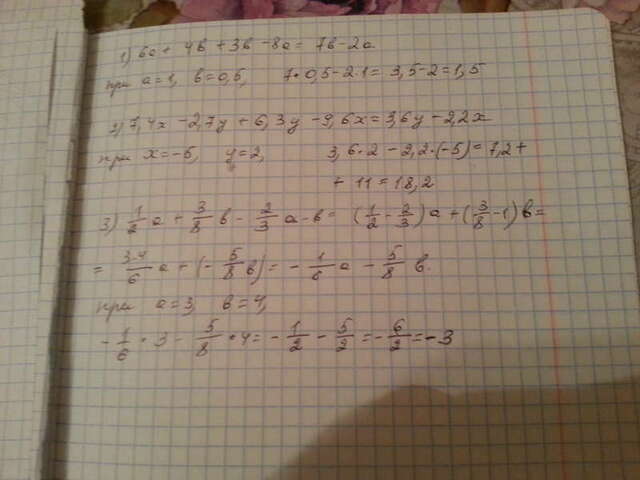 1) 6a + 4b + 3b - 8a = 7b - 2a.
при a = 1, b = 0,5, 7 • 0,5 - 2 • 1 = 3,5 - 2 = 1,5
2) 7,4x - 2,7y + 6,3y - 9,6x = 3,6y - 2,2x
при x = -5, y = 2, 3,6 • 2 - 2,2 • (-5) = 7,2 +
+ 11 = 18,2
3) 1/2 a + 3/8 b - 2/3 a - b = (1/2 - 2/3) a + (3/8 - 1) b =
= 3-4/6 a + (- 5/8 b) = - 1/6 a - 5/8 b.
при a = 3, b = 4,
- 1/6 • 3 - 5/8 • 4 = - 1/2 - 5/2 = - 6/2 = -3